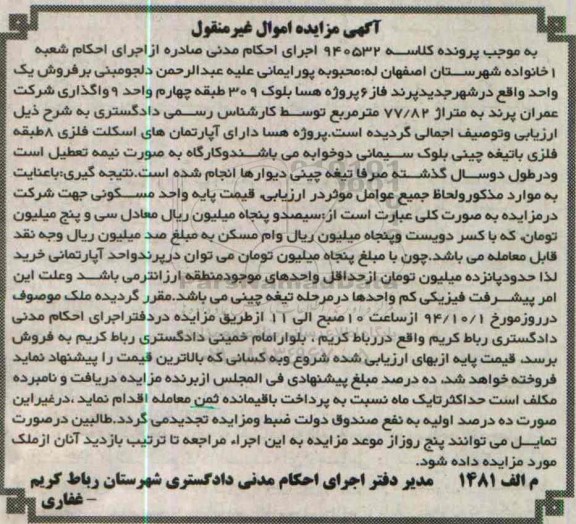 آگهی مزایده اموال غیرمنقول
به موجب پرونده کلاسه ۹۴۰۵۳۲ اجرای احکام مدنی صادره ازاجرای احکام شعبه
۱خانواده شهرستان اصفهان له:محبوبه پورایمانی علیه عبدالرحمن دلجومبنی برفروش یک
واحد واقع درشهرجدیدپرند فاز۶پروژه هسا بلوک ۳۰۹ طبقه چهارم واحد ۹واگذاری شرکت
عمران پرند به متراژ ۷۷/۸۲ مترمربع توسط کارشناس رسمی دادگستری به شرح ذیل
ارزیابی وتوصیف اجمالی گردیده است.پروژه هسا دارای آپارتمان های اسکلت فلزی ۸طبقه
فلزی باتیغه چینی بلوک سیمانی دوخوابه می باشندوکارگاه به صورت نیمه تعطیل است
ودرطول دوسال گذشته صرفا تیغه چینی دیوارها انجام شده است.نتیجه گیری:باعنایت
به موارد مذکورولحاظ جمیع عوامل موثردر ارزیابی، قیمت پایه واحد مسکونی جهت شرکت
درمزایده به صورت کلی عبارت است از:سیصدو پنجاه میلیون ریال معادل سی و پنج میلیون
تومان، که با کسر دویست وپنجاه میلیون ریال وام مسکن به مبلغ صد میلیون ریال وجه نقد
قابل معامله می باشد.چون با مبلغ پنجاه میلیون تومان می توان درپرندواحد آپارتمانی خرید
لذا حدودپانزده میلیون تومان ازحداقل واحدهای موجودمنطقه ارزانترمی باشد وعلت این
امر پیشرفت فیزیکی کم واحدها درمرحله تیغه چینی می باشد.مقرر گردیده ملک موصوف
درروزمورخ ۹۴/۱۰/۱ ازساعت ۱۰صبح الی ۱۱ ازطریق مزایده دردفتراجرای احکام مدنی
دادگستری رباط کریم واقع دررباط کریم ، بلوارامام خمینی دادگستری رباط کریم به فروش
برسد، قیمت پایه ازبهای ارزیابی شده شروع وبه کسانی که بالاترین قیمت را پیشنهاد نماید
فروخته خواهد شد، ده درصد مبلغ پیشنهادی فی المجلس ازبرنده مزایده دریافت و نامبرده
مکلف است حداکثرتایک ماه نسبت به پرداخت باقیمانده ثمن معامله اقدام نماید ،درغیراین
صورت ده درصد اولیه به نفع صندوق دولت ضبط ومزایده تجدیدمی گردد.طالبین درصورت
تمایل می توانند پنج روزاز موعد مزایده به این اجراء مراجعه تا ترتیب بازدید آنان ازملک
مورد مزایده داده شود.
م الف ۱۴۸۱ مدیر دفتر اجرای احکام مدنی دادگستری شهرستان رباط کریم
– غفاری